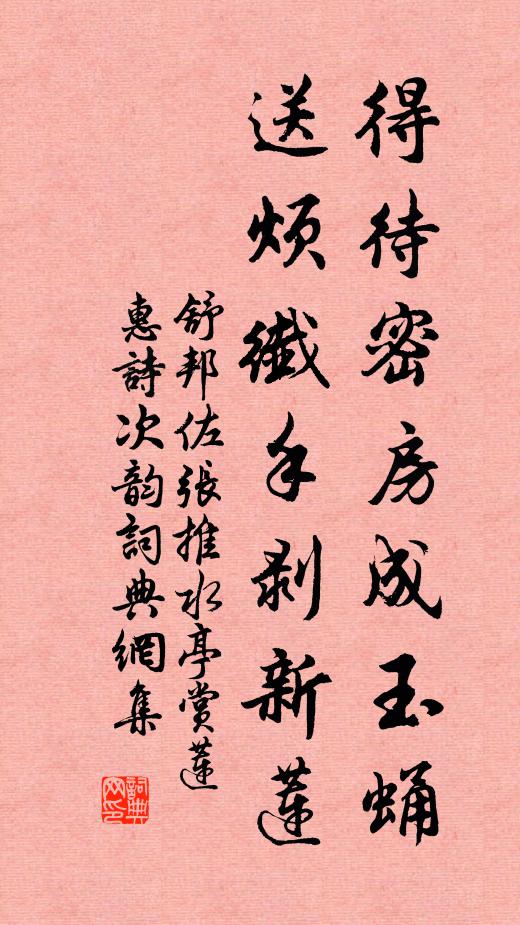 得待密房成玉蛹
送烦纖手剥新蓮
舒邦佐張推水亭賞蓮
惠詩次韵詞典網集
詞典网印